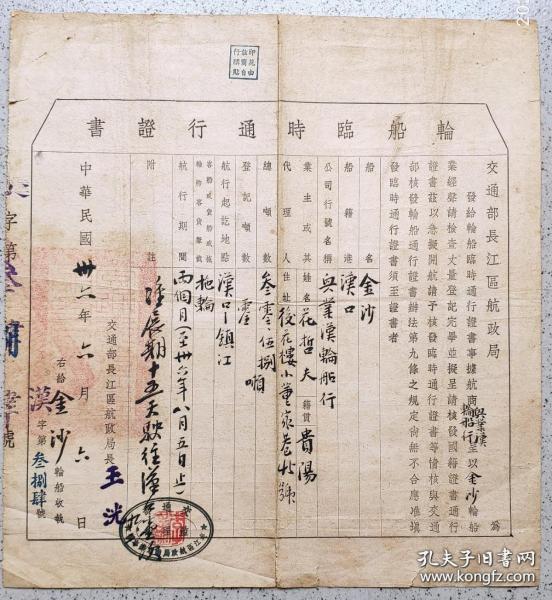 輪船臨時通行證書
印花由
茲商自
行購貼
交通部長江區航政局 為
發給輪船臨時通行證書事據航商興業漢輪船行呈以金沙輪船
業經聲請檢查丈量登記完畢並擬呈請核發國籍證書通行
證書茲以急擬開航請予核發臨時通行證書等情核與交通
部核發輪船通行證書辦法第九條之規定尚無不合應准填
發臨時通行證書須至證書者
船名 金沙
船籍港 漢口
公司行號名稱 興業漢輪船行
業主或其姓名 花哲夫 籍貫 貴陽
代理人住址 後花樓小董家巷 號
總噸數 叁零伍捌噸
登記噸數 零
航行起訖地點 漢口—鎮江
客船或貨船或拖輪或客貨兼載 拖輪
航行期間 兩個月(至卅六年八月五日止)
附註 准展期十五天駛往漢
交通部長江區航政局長 王洸
中華民國卅六年六月六日
右給金沙輪船收執
漢字第叁捌肆號
字第
孔夫子旧书网